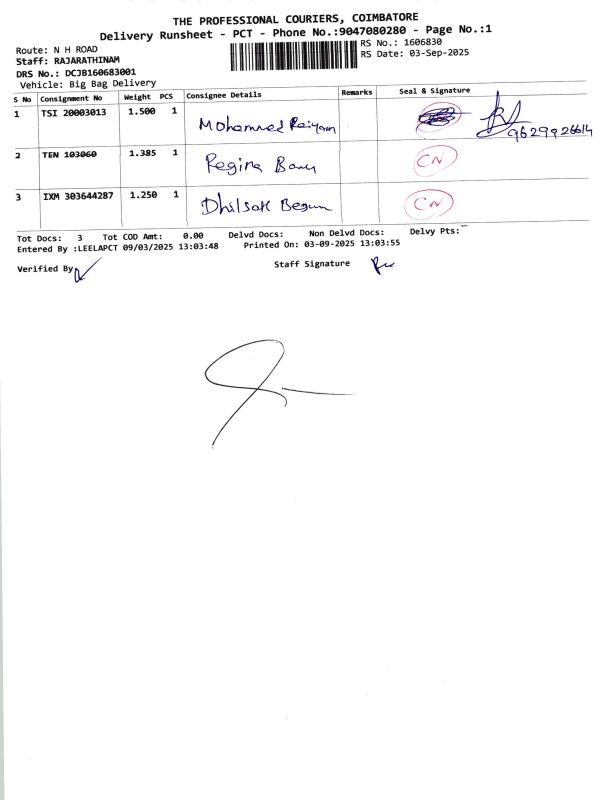 THE PROFESSIONAL COURIERS, COIMBATORE
Delivery Runsheet - PCT - Phone No.:9047080280 - Page No.:1
Route: N H ROAD
RS No.: 1606830
Staff: RAJARATHINAM
RS Date: 03-Sep-2025
DRS No.: DCJB160683001
Vehicle: Big Bag Delivery
S No Consignment No Weight PCS Consignee Details Remarks Seal & Signature
1 TSI 20003013 1.500 1 Mohammed 9629926614
2 TEN 103060 1.385 1 Regina Banu CN
3 IXM 303644287 1.250 1 Dhilsath Begum CN
Tot Docs: 3 Tot COD Amt: 0.00 Delvd Docs: Non Delvd Docs: Delvy Pts:
Entered By :LEELAPCT 09/03/2025 13:03:48 Printed On: 03-09-2025 13:03:55
Verified By Staff Signature